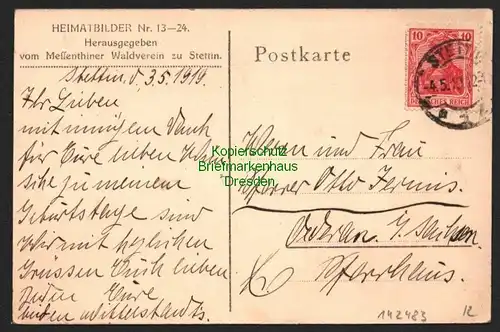 HEIMATBILDER Nr. 13—24.
Herausgegeben
vom Messenthiner Waldverein zu Stettin.
Stettin, d. 3.5.1919.
Ihr Lieben
mit innigem Dank
für Eure lieben Wün
sche zu meinem
Geburtstage sind
wir mit herzlichen
Grüssen Euch lieben
Eure
Postkarte
10 10
DEUTSCHES REICH
STETTIN
-4.5.19
Herrn und Frau
Pfarrer Otto
Oederan i/Sachsen
Pfarrhaus.
Kopierschutz
Briefmarkenhaus
Dresden
142483
12